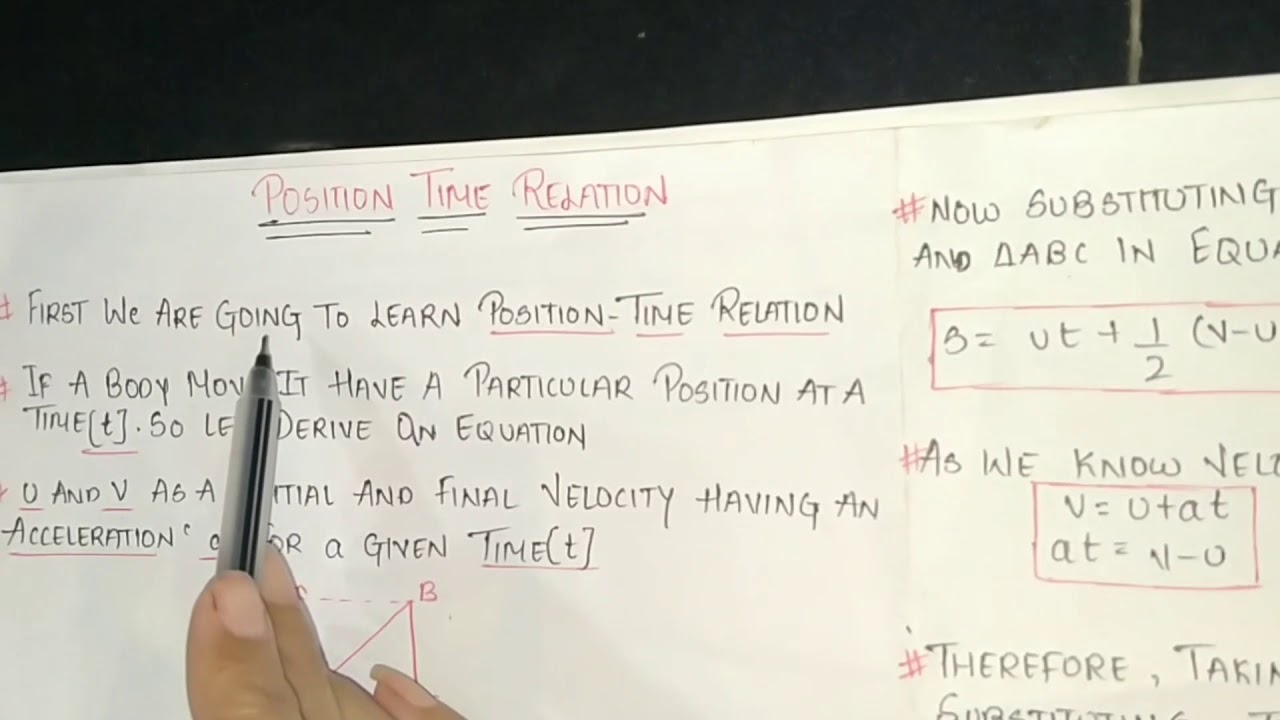 POSITION TIME RELATION
# FIRST WE ARE GOING TO LEARN POSITION-TIME RELATION
# IF A BODY MOV IT HAVE A PARTICULAR POSITION AT A
TIME[t]. SO LE DERIVE AN EQUATION
U AND V AS A ITIAL AND FINAL VELOCITY HAVING AN
ACCELERATION ' OR a GIVEN TIME[t]
B
# NOW SUBSTITUTING
AND ΔABC IN EQUA
S = ut + 1/2 (v-u
# AS WE KNOW VEL
v = u+at
at = v-u
# THEREFORE, TAKIN